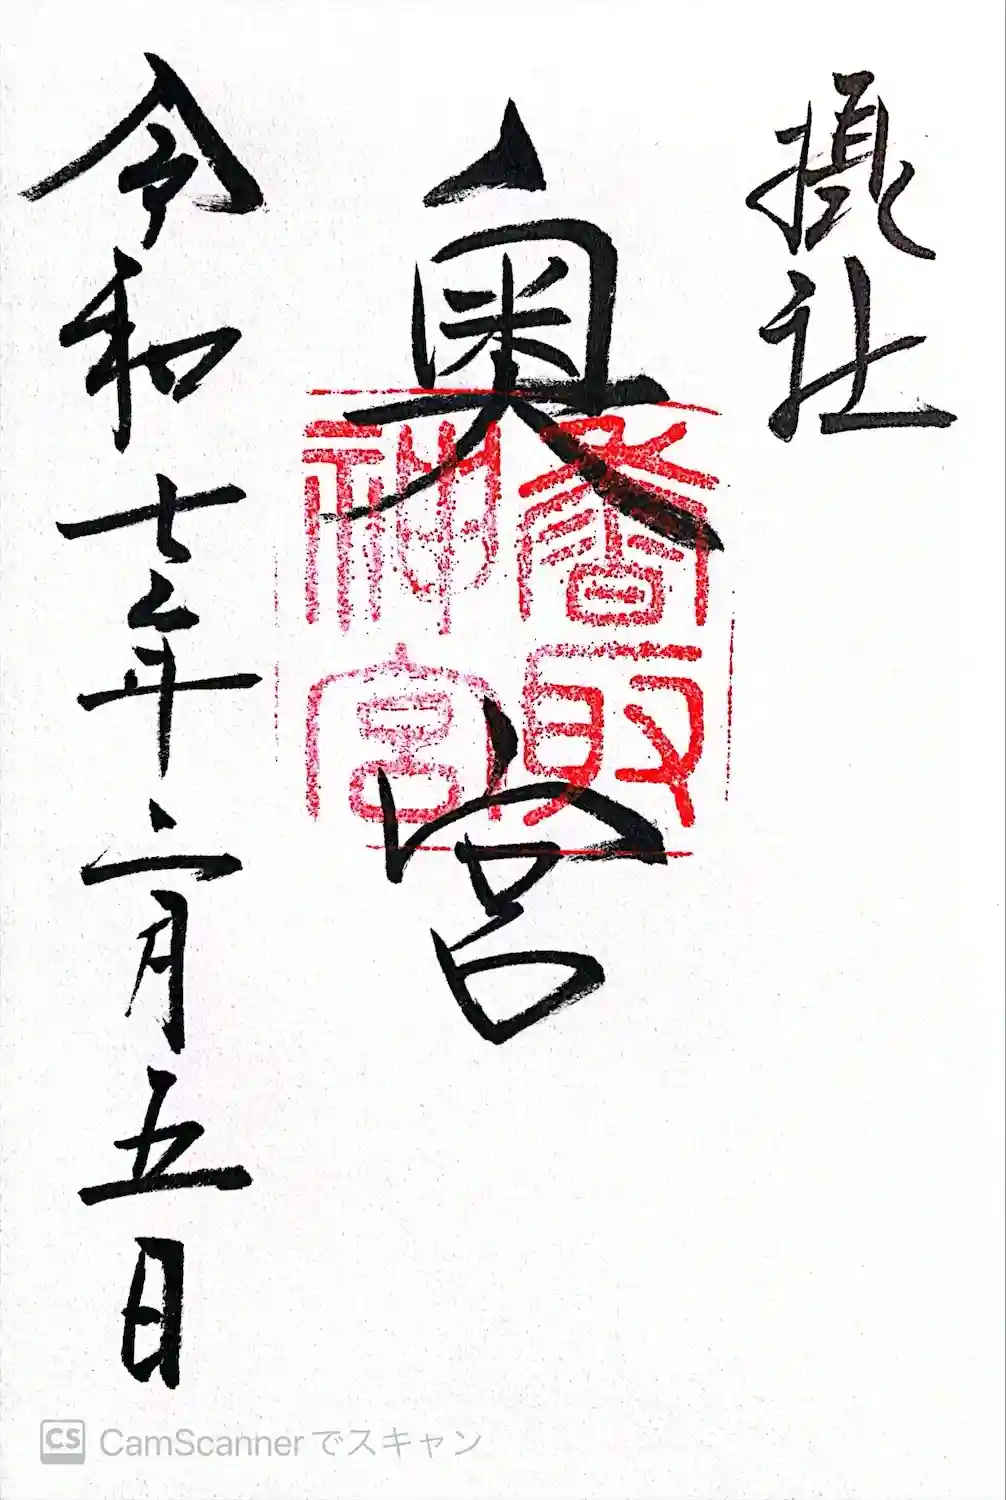 摂社
奥宮
香取
神宮
令和七年二月五日
CS CamScannerでスキャン